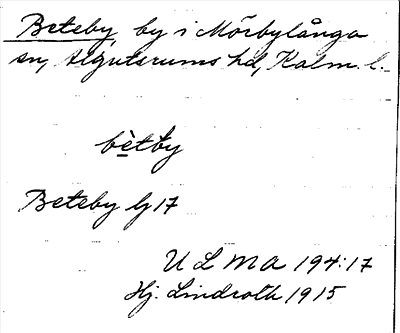 Beteby, by i Mörbylånga
sn, Algutsrums hd, Kalm. l.
bètby
Beteby lj 17
ULMA 194:17
Hj. Lindroth 1915